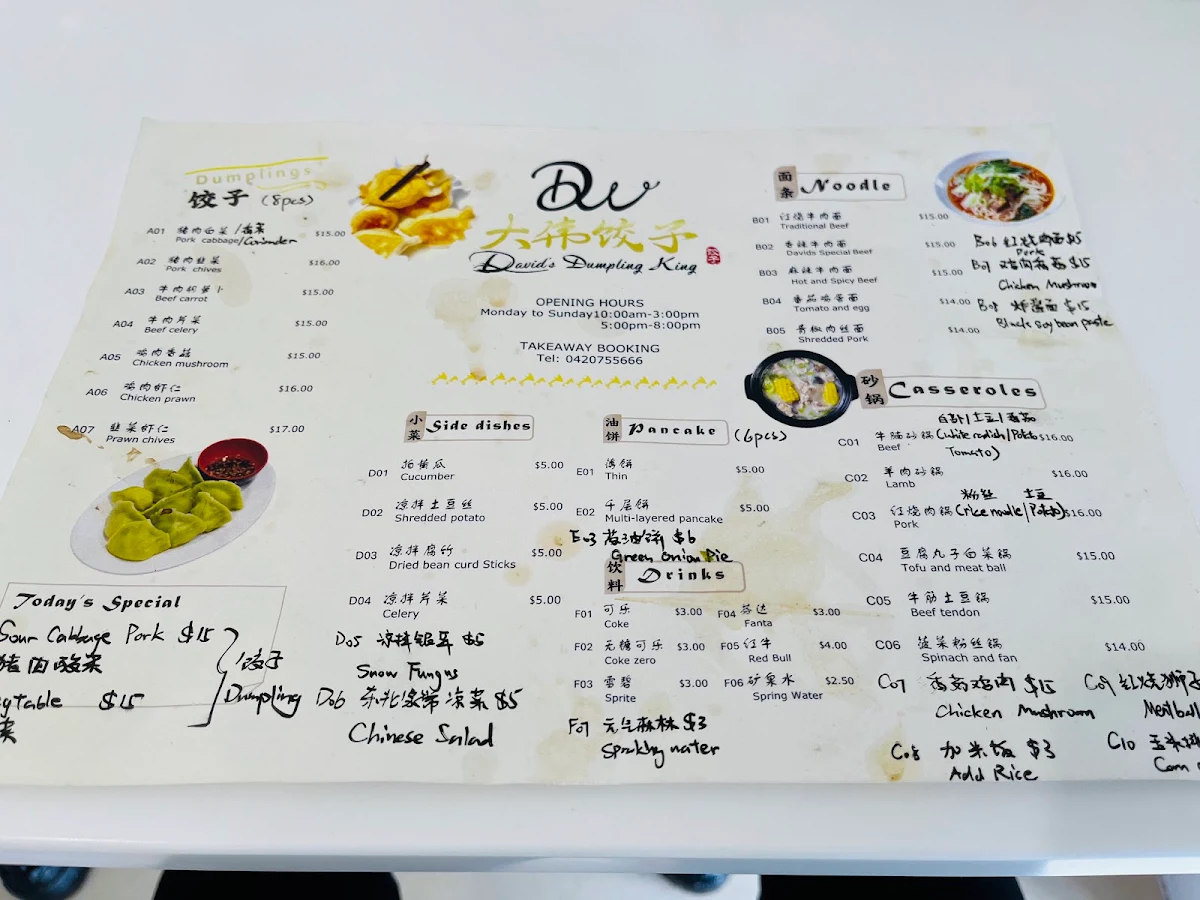 Dumplings
饺子 (8pcs)
A01 猪肉白菜 /香菜 $15.00
Pork cabbage/Coriander
A02 猪肉韭菜 $16.00
Pork chives
A03 牛肉胡萝卜 $15.00
Beef carrot
A04 牛肉芹菜 $15.00
Beef celery
A05 鸡肉香菇 $15.00
Chicken mushroom
A06 鸡肉虾仁 $16.00
Chicken prawn
A07 韭菜虾仁 $17.00
Prawn chives
Today's Special
Sour Cabbage Pork $15
猪肉酸菜
getable $15
菜
饺子
Dumpling
DW
大伟饺子
David's Dumpling King
饺子
OPENING HOURS
Monday to Sunday10:00am-3:00pm
5:00pm-8:00pm
TAKEAWAY BOOKING
Tel: 0420755666
小菜 Side dishes
D01 拍黄瓜 $5.00
Cucumber
D02 凉拌土豆丝 $5.00
Shredded potato
D03 凉拌腐竹 $5.00
Dried bean curd Sticks
D04 凉拌芹菜 $5.00
Celery
D05 凉拌银耳 $5
Snow Fungus
D06 东北家常凉菜 $5
Chinese Salad
油饼 Pancake (6pcs)
E01 薄饼 $5.00
Thin
E02 千层饼 $5.00
Multi-layered pancake
E03 葱油饼 $6
Green Onion Pie
饮料 Drinks
F01 可乐 $3.00
Coke
F02 无糖可乐 $3.00
Coke zero
F03 雪碧 $3.00
Sprite
F04 芬达 $3.00
Fanta
F05 红牛 $4.00
Red Bull
F06 矿泉水 $2.50
Spring Water
F07 元气森林 $3
Sprakling water
面条 Noodle
B01 红烧牛肉面 $15.00
Traditional Beef
B02 香辣牛肉面 $15.00
Davids Special Beef
B03 麻辣牛肉面 $15.00
Hot and Spicy Beef
B04 番茄鸡蛋面 $14.00
Tomato and egg
B05 青椒肉丝面 $14.00
Shredded Pork
B06 红烧肉面 $15
Pork
B07 鸡肉香菇 $15
Chicken Mushroom
B08 炸酱面 $15
Black soy bean paste
砂锅 Casseroles
白萝卜/土豆/番茄
C01 牛腩砂锅 (White radish/Potato $16.00
Beef Tomato)
C02 羊肉砂锅 $16.00
Lamb
粉丝 土豆
C03 红烧肉锅 (rice noodle/Potato) $16.00
Pork
C04 豆腐丸子白菜锅 $15.00
Tofu and meat ball
C05 牛筋土豆锅 $15.00
Beef tendon
C06 菠菜粉丝锅 $14.00
Spinach and fan
C07 香菇鸡肉 $15
Chicken Mushroom
C08 加米饭 $3
Add Rice
C09 红烧狮子
Meatball
C10 玉米排
Corn